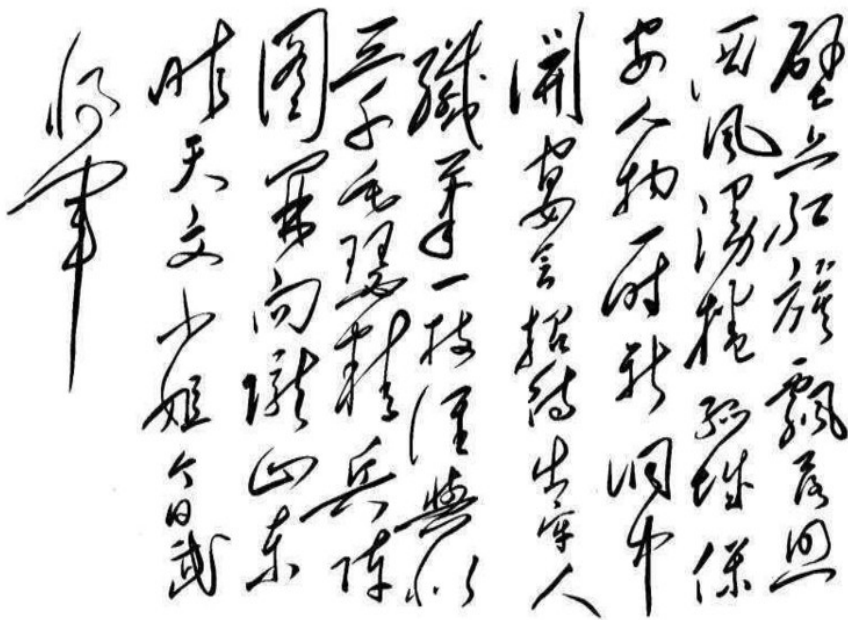 壁上红旗飘落照
西风漫捲孤城保
安人物一时新洞中
開宴会招待出牢人
纖笔一枝谁與似
三千毛瑟精兵陣
图開向隴山东
昨天文小姐今日武
将军